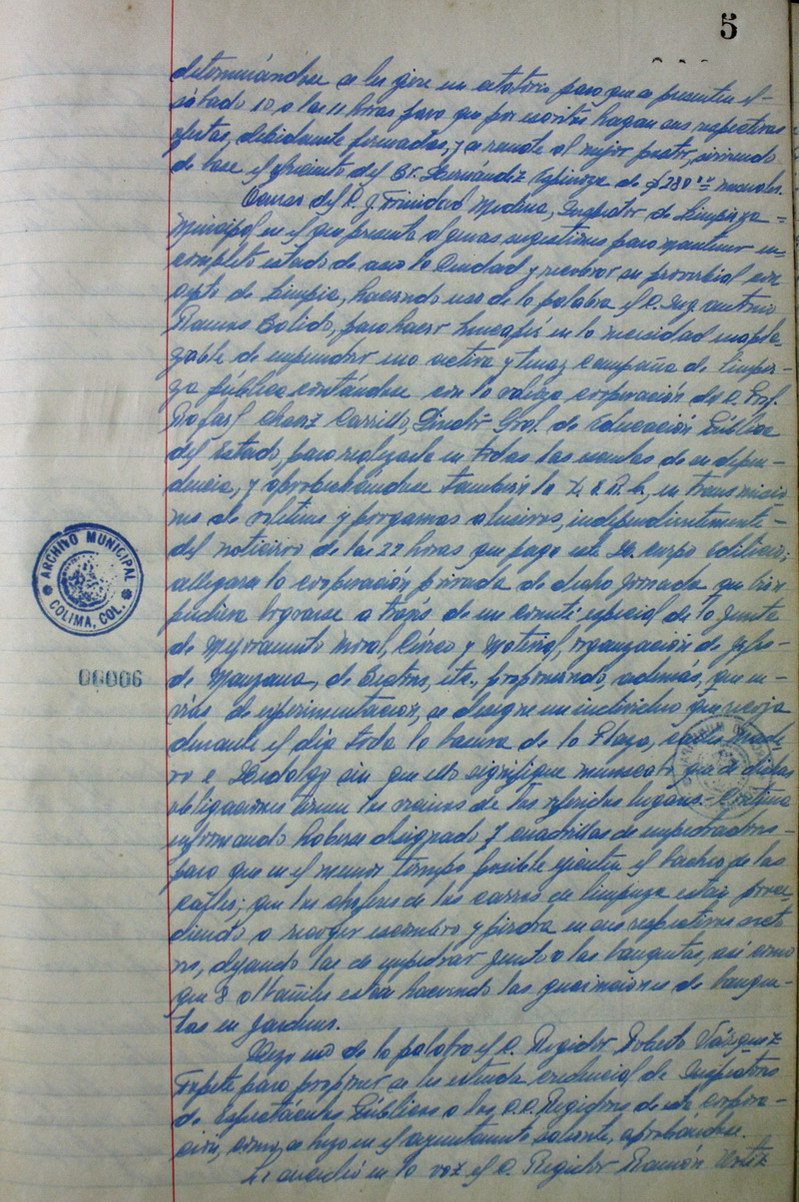 5
determinándose se les gire un citatorio para que se presenten el
sábado 10 a las 11 horas para que por escrito hagan sus respectivas
ofertas, debidamente firmadas, y se remate al mejor postor, sirviendo
de base el ofrecimiento del Sr. Hernández Espinoza de $230.00 mensuales.
Ocurso del C. J. Trinidad Medina, Inspector de Limpieza
Municipal en el que presenta algunas sugestiones para mantener en
completo estado de aseo la Ciudad y recobrar su proverbial con-
cepto de Limpia, haciendo uso de la palabra el C. Ing. Antonio
Ramos Salido, para hacer hincapié en la necesidad inapla-
zable de emprender una activa y tenaz campaña de limpie-
za pública contándose con la valiosa cooperación del C. Prof.
Rafael Chávez Carrillo, Director Gral. de Educación Pública
del Estado, para realizarla en todas las escuelas de su depen-
dencia, y aprobándose también la en transmisio-
nes de boletines y programas alusivos, independientemente
del noticiero de las 22 horas que paga este H. Cuerpo Edilicio;
allegarse la cooperación privada de dicha jornada que bien
pudiera lograrse a través de un comité especial de la Junta
de Mejoramiento Moral, Cívico y Material, organización de Jefes
de Manzana, de Sectores, etc., proponiendo además, que en
vías de experimentación, se designe un individuo que recoja
durante el día toda la basura de la Plaza, calles Made-
ro e Hidalgo sin que ello signifique menoscabo que de dichas
obligaciones tienen los vecinos de los referidos lugares.- Continúa
informando haberse designado 7 cuadrillas de empedradores
para que en el menor tiempo posible ejecuten el bacheo de las
calles; que los choferes de los carros de limpieza están proce-
diendo a recoger escombro y piedra en sus respectivos secto-
res, dejando las de empedrar junto a las banquetas, así como
que 8 albañiles están haciendo las guarniciones de banque-
tas en jardines.
Hizo uso de la palabra el C. Regidor Roberto Vázquez
Tapete para proponer se les extienda credencial de Inspectores
de Espectáculos Públicos a los C.C. Regidores de esta corpora-
ción, como se hizo en el ayuntamiento saliente, aprobándose.
Le sucedió en la voz el C. Regidor Ramón Ortiz
ARCHIVO MUNICIPAL
COLIMA, COL.
00006